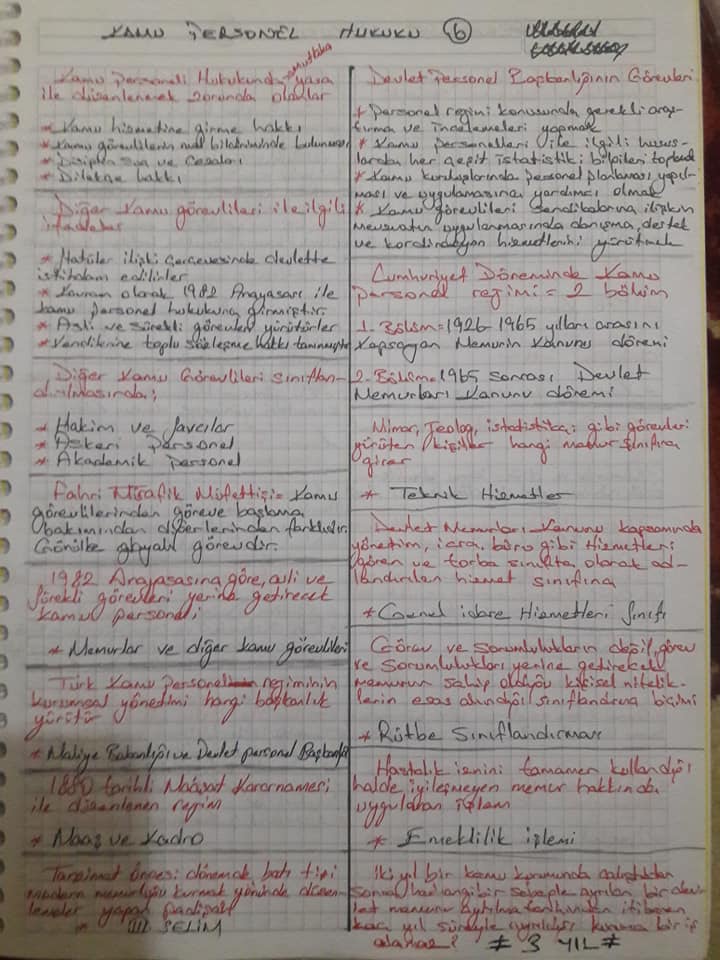 KAMU PERSONEL HUKUKU 6
Kamu Personeli Hukukunda mutlaka yasa
ile düzenlenmek zorunda olanlar
* Kamu hizmetine girme hakkı
* Kamu görevlilerinin mal bildiriminde bulunması
* Disiplin suç ve cezaları
* Dilekçe hakkı
Diğer kamu görevlileri ile ilgili
ifadeler
* Statüler ilişki çerçevesinde devlette
istihdam edilirler
* Kavram olarak 1982 Anayasası ile
kamu personel hukukuna girmiştir.
* Asli ve sürekli görevleri yürütürler
* Kendilerine toplu sözleşme hakkı tanınmıştır
Diğer Kamu Görevlileri sınıflan-
dırılmasında;
* Hakim ve Savcılar
* Askeri Personel
* Akademik personel
Fahri Trafik Müfettişi = Kamu
görevlilerinden göreve başlama
bakımından diğerlerinden farklıdır.
Gönüllü görevdir.
1982 Anayasasına göre, asli ve
sürekli görevleri yerine getirecek
kamu personeli
* Memurlar ve diğer kamu görevlileri
Türk Kamu Personel rejiminin
kurumsal yönetimi hangi başkanlık
yürütür
* Maliye Bakanlığı ve Devlet personel Başkanlığı
1880 tarihli Maaşat Kararnamesi
ile düzenlenen rejim
* Maaş ve Kadro
Tanzimat öncesi dönemde batı tipi
modern memurluğu kurmak yönünde düzen-
lemeler yapan padişah
* III SELİM
Devlet Personel Başkanlığının Görevleri
* Personel rejimi konusunda gerekli araş-
tırma ve incelemeleri yapmak
* Kamu personelleri ile ilgili husus-
larda her çeşit istatistiki bilgileri toplamak
* Kamu kuruluşlarında personel planlaması yapıl-
ması ve uygulamasına yardımcı olmak
* Kamu görevlileri Sendikalarına ilişkin
mevzuatın uygulanmasında danışma, destek
ve kordindasyon hizmetlerini yürütmek
Cumhuriyet Döneminde Kamu
personel rejimi = 2 bölüm
1. Bölüm = 1926-1965 yılları arasını
Kapsayan Memurin Kanunu dönemi
2. Bölüm = 1965 sonrası Devlet
Memurları Kanunu dönemi
Mimar, Jeolog, istatistikçi gibi görevleri
yürüten kişiler hangi memur sınıfına
girer
* Teknik Hizmetler
Devlet Memurları Kanunu kapsamında
yönetim, icra, büro gibi Hizmetleri
gören ve torba sınıfta olarak ad-
landırılan hizmet sınıfına
* Genel idare Hizmetleri Sınıfı
Görev ve sorumlulukların değil, görev
ve sorumlulukları yerine getirecek
memurun sahip olduğu kişisel nitelik-
lerin esas alındığı sınıflandırma biçimi
* Rütbe Sınıflandırması
Hastalık iznini tamamen kullandığı
halde iyileşmeyen memur hakkında
uygulanan işlem
* Emeklilik işlemi
İki yıl bir kamu kurumunda çalıştıktan
sonra herhangi bir sebeple ayrılan bir dev-
let memuru ayrılma tarihinden itibaren
kaç yıl süreyle ayrıldığı kuruma bir iş
alamaz?
# 3 YIL #